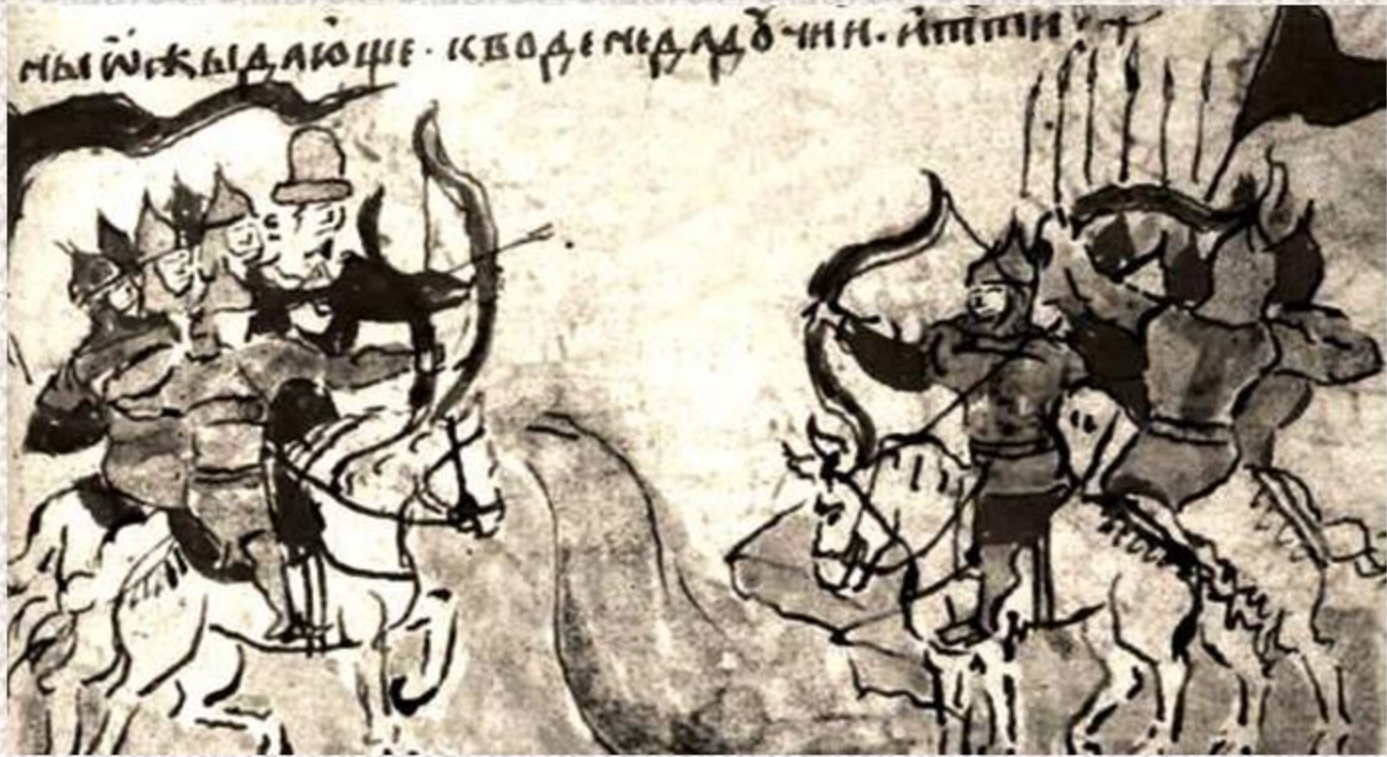 ны ѿжыдающе · кводенедадꙋчии · итти